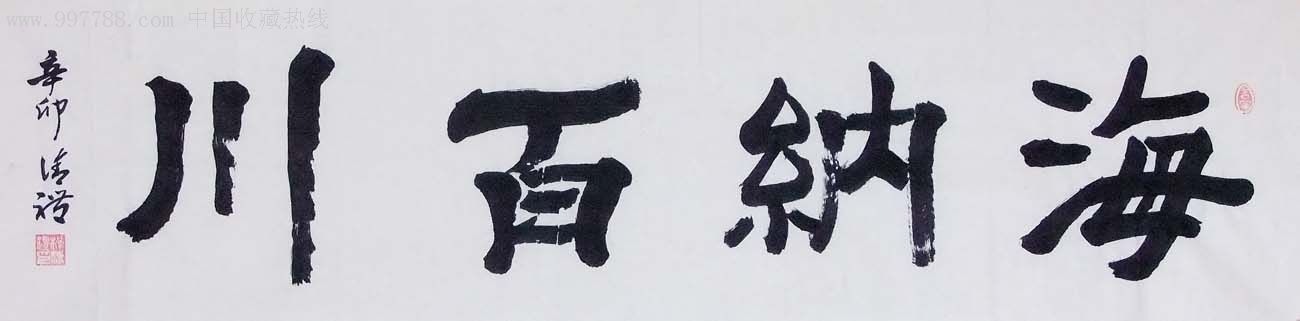 www.997788.com 中国收藏热线
海納百川
辛卯 清禮